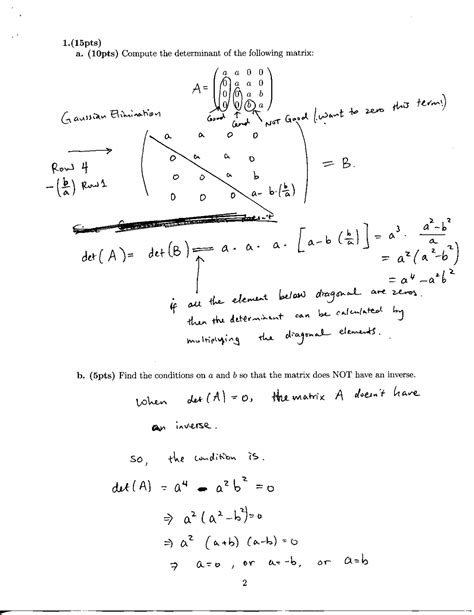 1.(15pts)
a. (10pts) Compute the determinant of the following matrix:
A = ( a a 0 0
0 a a 0
0 0 a b
0 0 b a )
Gaussian Elimination
Good Good NOT Good (want to zero this term)
Row 4
- (b/a) Row 1
( a a 0 0
0 a a 0
0 0 a b
0 0 0 a - b·(b/a) ) = B.
det(A) = det(B) = a · a · a · [a - b (b/a)] = a³ · (a² - b²)/a
= a² (a² - b²)
= a⁴ - a² b²
if all the element below diagonal are zeros.
then the determinant can be calculated by
multiplying the diagonal elements.
b. (5pts) Find the conditions on a and b so that the matrix does NOT have an inverse.
When det(A) = 0, the matrix A doesn't have
an inverse.
so, the condition is.
det(A) = a⁴ - a² b² = 0
⇒ a² (a² - b²) = 0
⇒ a² (a+b) (a-b) = 0
⇒ a = 0, or a = -b, or a = b
2